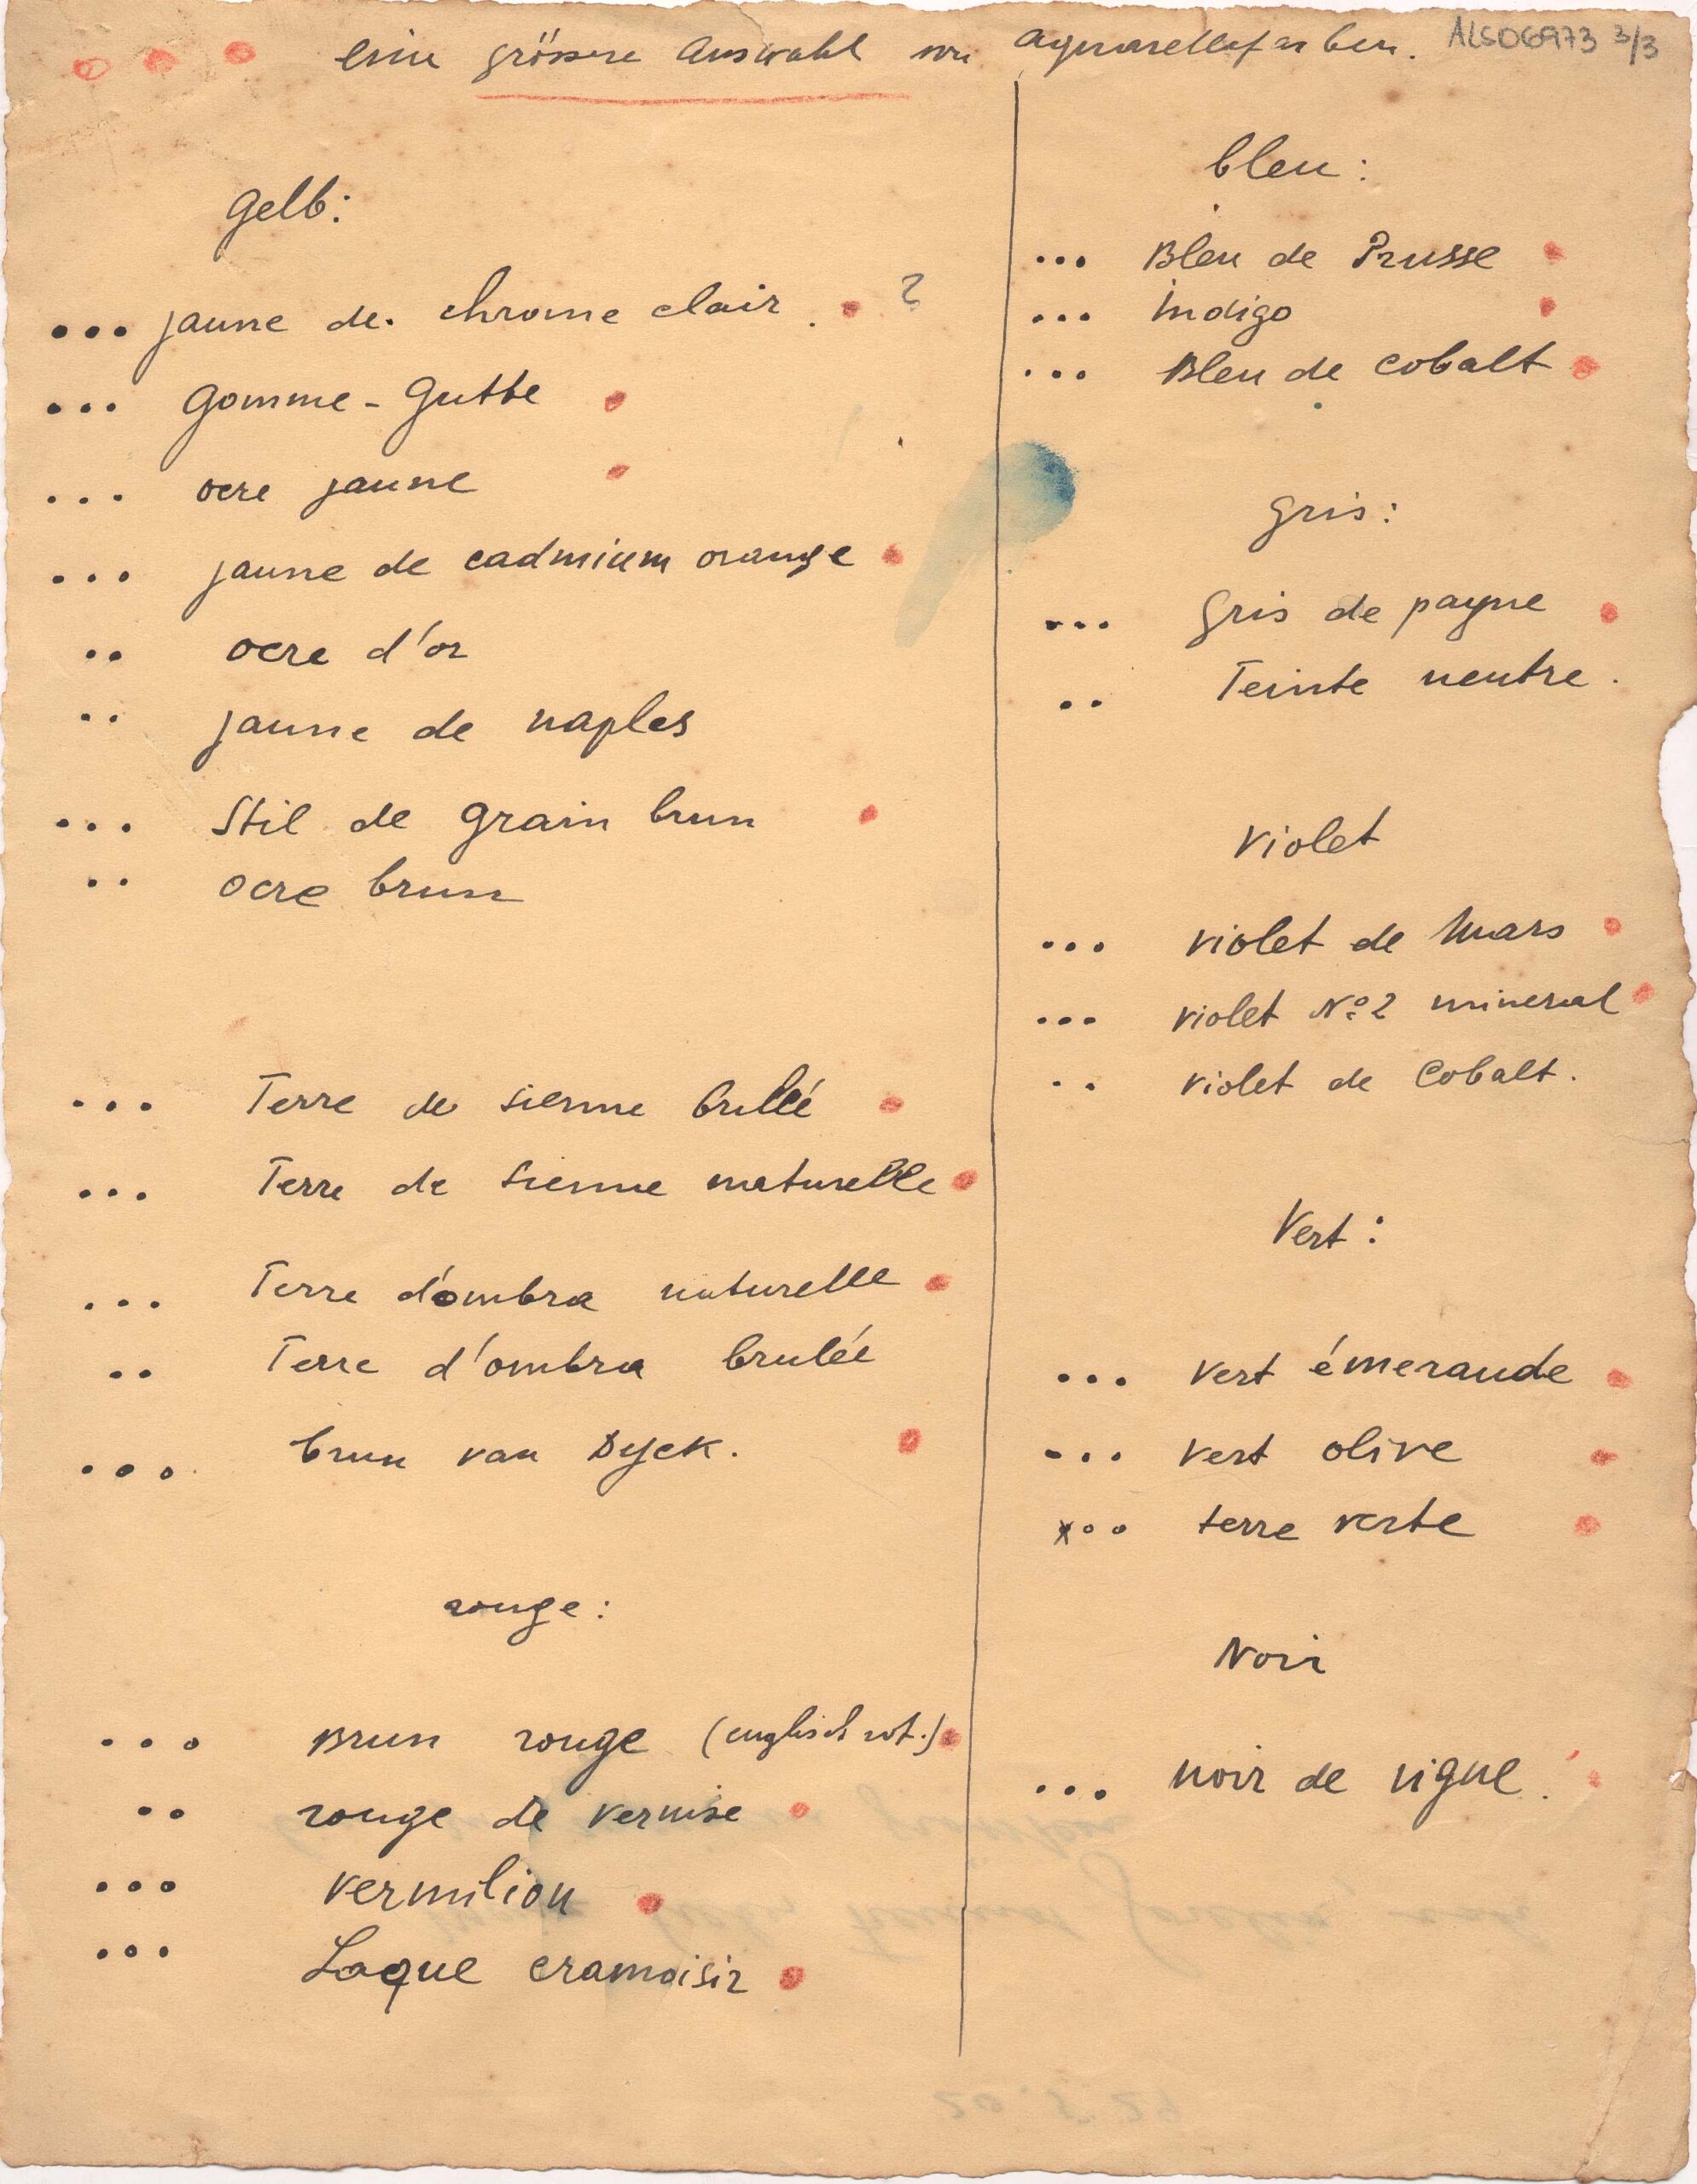 eine grössere Auswahl von Aquarellefarben.
ALS06973 3/3
gelb:
... jaune de chrome clair . ?
... Gomme-Gutte
... ocre jaune
... jaune de cadmium orange
.. ocre d'or
.. jaune de naples
... Stil de grain brun
.. ocre brun
... Terre de sienne brullé
... Terre de sienne naturelle
... Terre d'ombra naturelle
.. Terre d'ombra brulée
... brun van Dyck.
rouge:
... Brun rouge (englisch rot.)
.. rouge de vernise
... vermilion
... Laque cramoisir
bleu:
... Bleu de Prusse
... indigo
... Bleu de cobalt
gris:
... gris de payne
.. Teinte neutre.
violet
... violet de Mars
... violet No 2 mineral
.. violet de Cobalt.
Vert:
... vert émeraude
... vert olive
... terre verte
Noir
... noir de vigne.